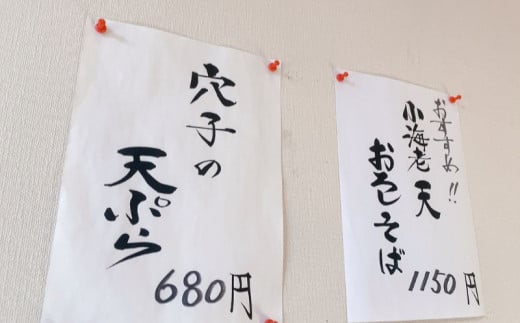 穴子の
天ぷら
680円
おすすめ!!
小海老天
おろしそば
1150円